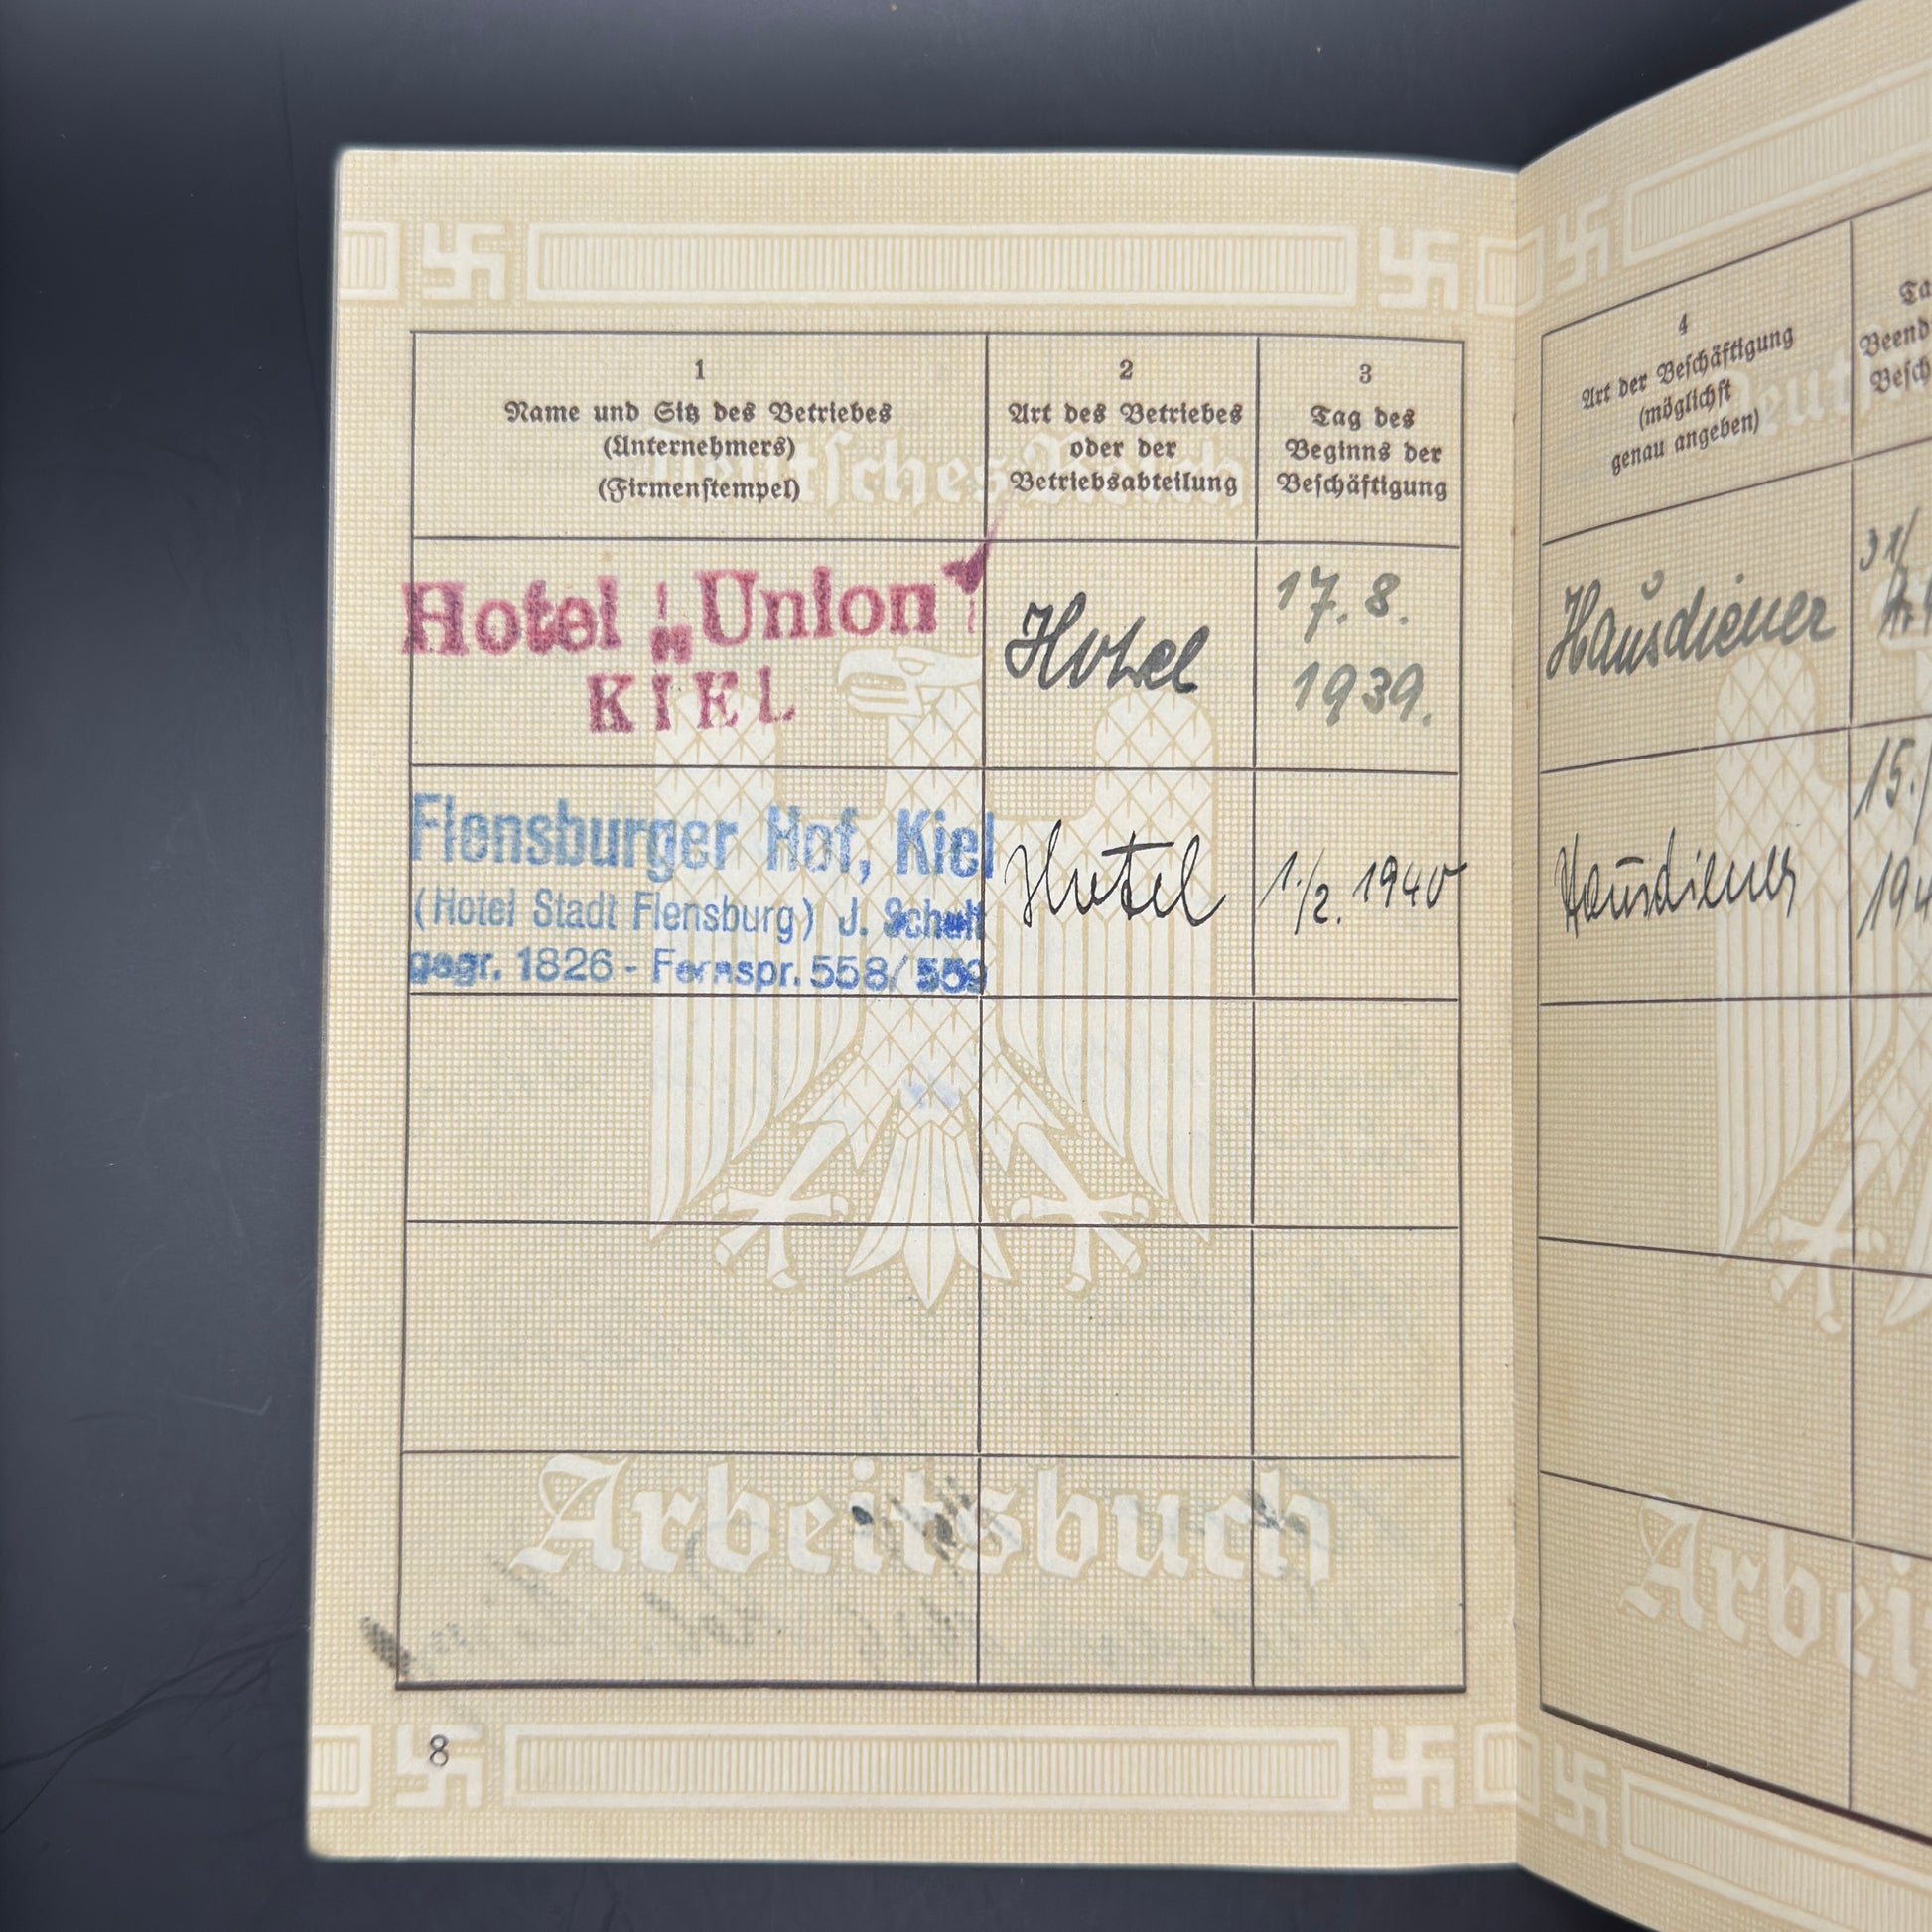 1
Name und Sitz des Betriebes
(Unternehmers)
(Firmenstempel)
2
Art des Betriebes
oder der
Betriebsabteilung
3
Tag des
Beginns der
Beschäftigung
Deutsches Reich
Hotel „Union"
KIEL
Hotel
17. 8.
1939.
Flensburger Hof, Kiel
(Hotel Stadt Flensburg) J.
gegr. 1826 - Fernspr. 558/559
Hotel
1./2. 1940
Arbeitsbuch
8
4
Art der Beschäftigung
(möglichst
genau angeben)
Hausdiener
31/
Hausdiener
15.
194
Arbei